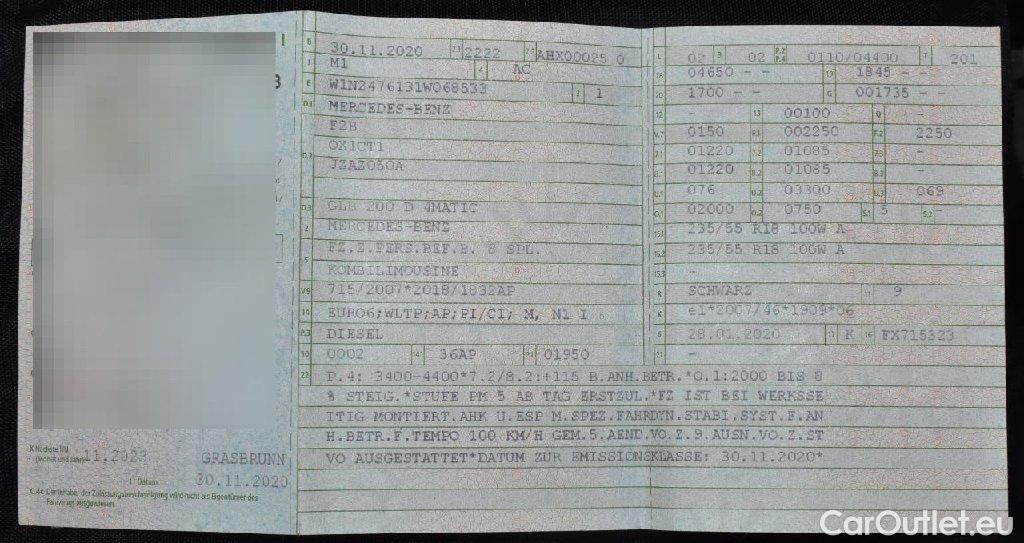 B 30.11.2020 2.1 2222 2.2 AHX00025 0
J M1 4 AC
E W1N2476131W068533 3 1
D.1 MERCEDES-BENZ
F2B
D.2 OX1CT1
JZAZ050A
D.3 GLB 200 D 4MATIC
2 MERCEDES-BENZ
FZ.Z.PERS.BEF.B. 8 SPL.
5 KOMBILIMOUSINE
V.9 715/2007*2018/1832AP
14 EURO6;WLTP;AP;PI/CI; M, N1 I
P.3 DIESEL
10 0002 14.1 36AP P.1 01950
22 P.4: 3400-4400*7.2/8.2:+115 B.ANH.BETR.*O.1:2000 BIS 8
% STEIG.*STUFE PM 5 AB TAG ERSTZUL.*FZ IST BEI WERKSSE
ITIG MONTIERT.AHK U.ESP M.SPEZ.FAHRDYN.STABI.SYST.F.AN
H.BETR.F.TEMPO 100 KM/H GEM.5.AEND.VO.Z.9.AUSN.VO.Z.ST
VO AUSGESTATTET*DATUM ZUR EMISSIONSKLASSE: 30.11.2020*
L 02 9 02 P.2 P.4 0110/04400 T 201
18 04650 - - 19 1845 - -
20 1700 - - G 001735 - -
12 - 13 00100 Q -
V.7 0150 F.1 002250 F.2 2250
7.1 01220 7.2 01085 7.3 -
8.1 01220 8.2 01085 8.3 -
U.1 076 U.2 03300 U.3 069
O.1 02000 O.2 0750 S.1 5 S.2 -
15.1 235/55 R18 100W A
15.2 235/55 R18 100W A
15.3 -
R SCHWARZ 11 9
K e1*2007/46*1909*06
6 28.01.2020 17 K 16 FX715323
21 -
X Nächste HU (Monat und Jahr) 11.2023
GRASBRUNN
I Datum 30.11.2020
C.4c Der Inhaber der Zulassungsbescheinigung wird nicht als Eigentümer des
Fahrzeugs ausgewiesen.
CarOutlet.eu